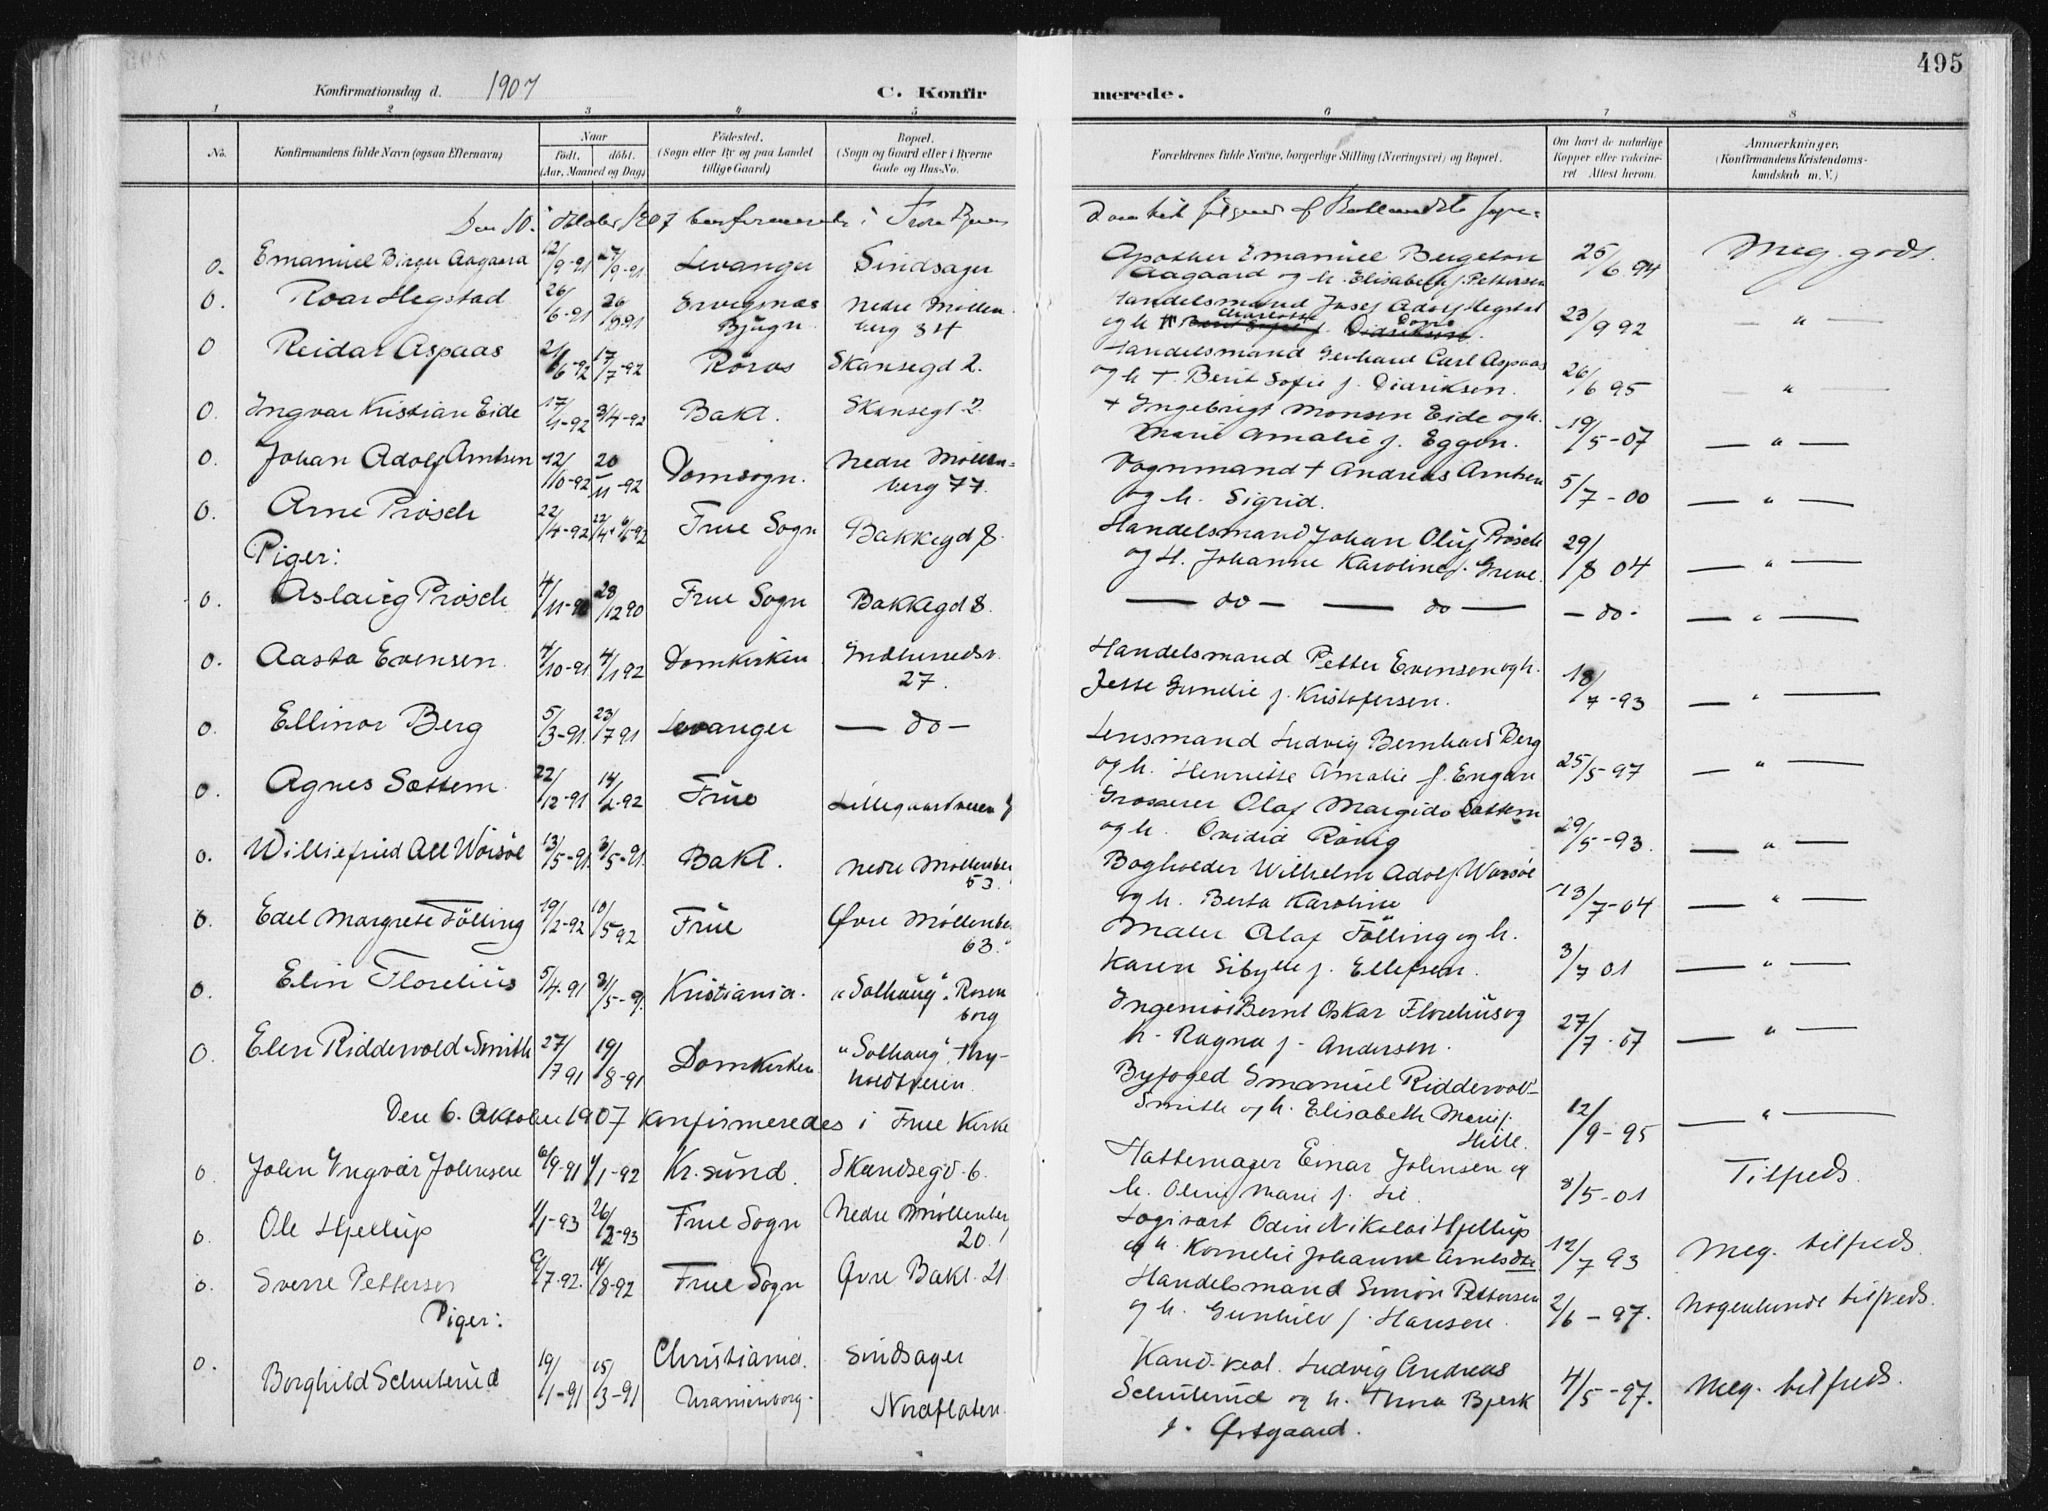 495
Konfirmationsdag d. 1907
C. Konfirmerede.
1 2 3 4 5 6 7 8
No.
Konfirmandens fulde Navn (ogsaa Efternavn)
Naar
født, døbt.
(Aar, Maaned og Dag)
Fødested.
(Sogn eller By og paa Landet
tillige Gaard)
Bopæl.
(Sogn og Gaard eller i Byerne
Gade og Hus-No.
Forældrenes fulde Navne, borgerlige Stilling (Næringsvei) og Bopæl.
Om havt de naturlige
Kopper eller vakcine-
ret Attest herom.
Anmærkninger,
(Konfirmandens Kristendoms-
kundskab m. V.)
Den 10. Oktober 1907 konfirmerede i Frue
0. Emanuel Birger Aagaard 12/9-91 27/9-91 Levanger Sindsager Apother Emanuel Bergeton 25/6 94 Meg. gods.
Aagaard og h. Elisabeth f. Pettersen
0. Roar Hegstad 26/6-91 26/8-91 Nedre Møllen Handelsmand Josef Adolf Hegstad 23/9 92 — " —
Bjugn berg 34 og h.
0 Reidar Aspaas 21/6-92 17/7-92 Röros Skansegd 2. Handelsmand Gerhard Carl Aspaas 26/6 95 "
og h +. Berit Sofie f. Didriksen.
0. Ingvar Kristian Eide 17/1-92 3/4-92 Bakl. Skansegt 2. + Ingebrigt Monsen Eide og h. 19/5-07 — " —
Marie Amalie f. Eggen.
0. Johan Adolf Arntsen 12/10-92 20/11-92 Domsogn. Nedre Møllen- Vognmand + Andreas Arntsen 5/7-00 — " —
berg 77. og h. Sigrid.
0. Arne Prösch 22/4-92 Frue Sogn Bakkegd 8. Handelsmand Johan Oluf Prösch 29/8 04 — " —
og H. Johanne Karoline f. Greve.
Piger:
0. Aslaug Prösch 4/11-90 28/12 90 Frue Sogn Bakkegd 8. — do — — do — - do - — " —
0. Aasta Evensen. 4/10-91 4/1 92 Domkirken Indherredsv. Handelsmand Petter Evensen og h. 18/7-93 — " —
27. Jette Gunelie f. Kristofersen.
0. Ellinor Berg 5/3-91. 23/7 91 Levanger — do — Lensmand Ludvig Bernhard Berg 25/5-97 — " —
og h. Henriette Amalie f. Engan
0. Agnes Sættem 22/12-91 14/2-92 Frue Grosserer Olaf Margido Sættem 29/5-93 — " —
og h. Ovidia Rönig
0. Williefried All Worsöe 13/5-91 Bakl. Nedre Møllenber Bogholder Wilhelm Adolf Worsöe 13/7-04 — " —
53. og h. Berta Karoline
0. Edel Margrete Fölling 19/2-92 10/5 92 Frue Øvre Møllenbe Maler Olaf Fölling og h. 3/7 01 — " —
63. Karen Sibylle f. Ellefsen.
0. Elin Florelius 5/4-91 31/5-91 Kristiania. "Solhaug". Rosen Ingeniör Bernt Oskar Florelius og 27/7-07 — " —
borg h. Ragna f. Andersen.
0. Elen Riddervold-Smith 27/7 91 19/8-91 Domkirken "Solhaug", Thy- Byfoged Emanuel Riddervold- 12/9-95 — " —
holdtveien. Smith og h. Elisabeth Marie f.
Hille.
Den 6. Oktober 1907 konfirmeredes i Frue Kirke
0. John Yngvar Johnsen 6/9-91 1/1-92 Kr. sund. Skandsegd. 6. Hattemager Einar Johnsen og 8/5-01 Tilfreds.
h. Oline Marie f. Lie.
0. Ole Hjellup 1/1-93 26/2-93 Frue Sogn Nedre Møllenber Logivært Odin Nikolai Hjellup 12/7 93 Meg. tilfreds.
20. og h. Kornelie Johanne Arntsdtr.
0. Sverre Pettersen 6/7-92. 14/8-92 Frue Sogn Øvre Bakl. 21 Handelsmand Simon Pettersen 2/6-97. Nogenlunde tilfreds.
og h. Gunhild f. Hansen.
Piger:
0. Borghild Schulerud 19/1-91 15/3-91 Christiania. Sindsager Kand. real. Ludvig Andreas 4/5-97. Meg. tilfreds.
Uranienborg. Nordflaten. Schulerud og h. Thora Bjerk
f. Østgaard.